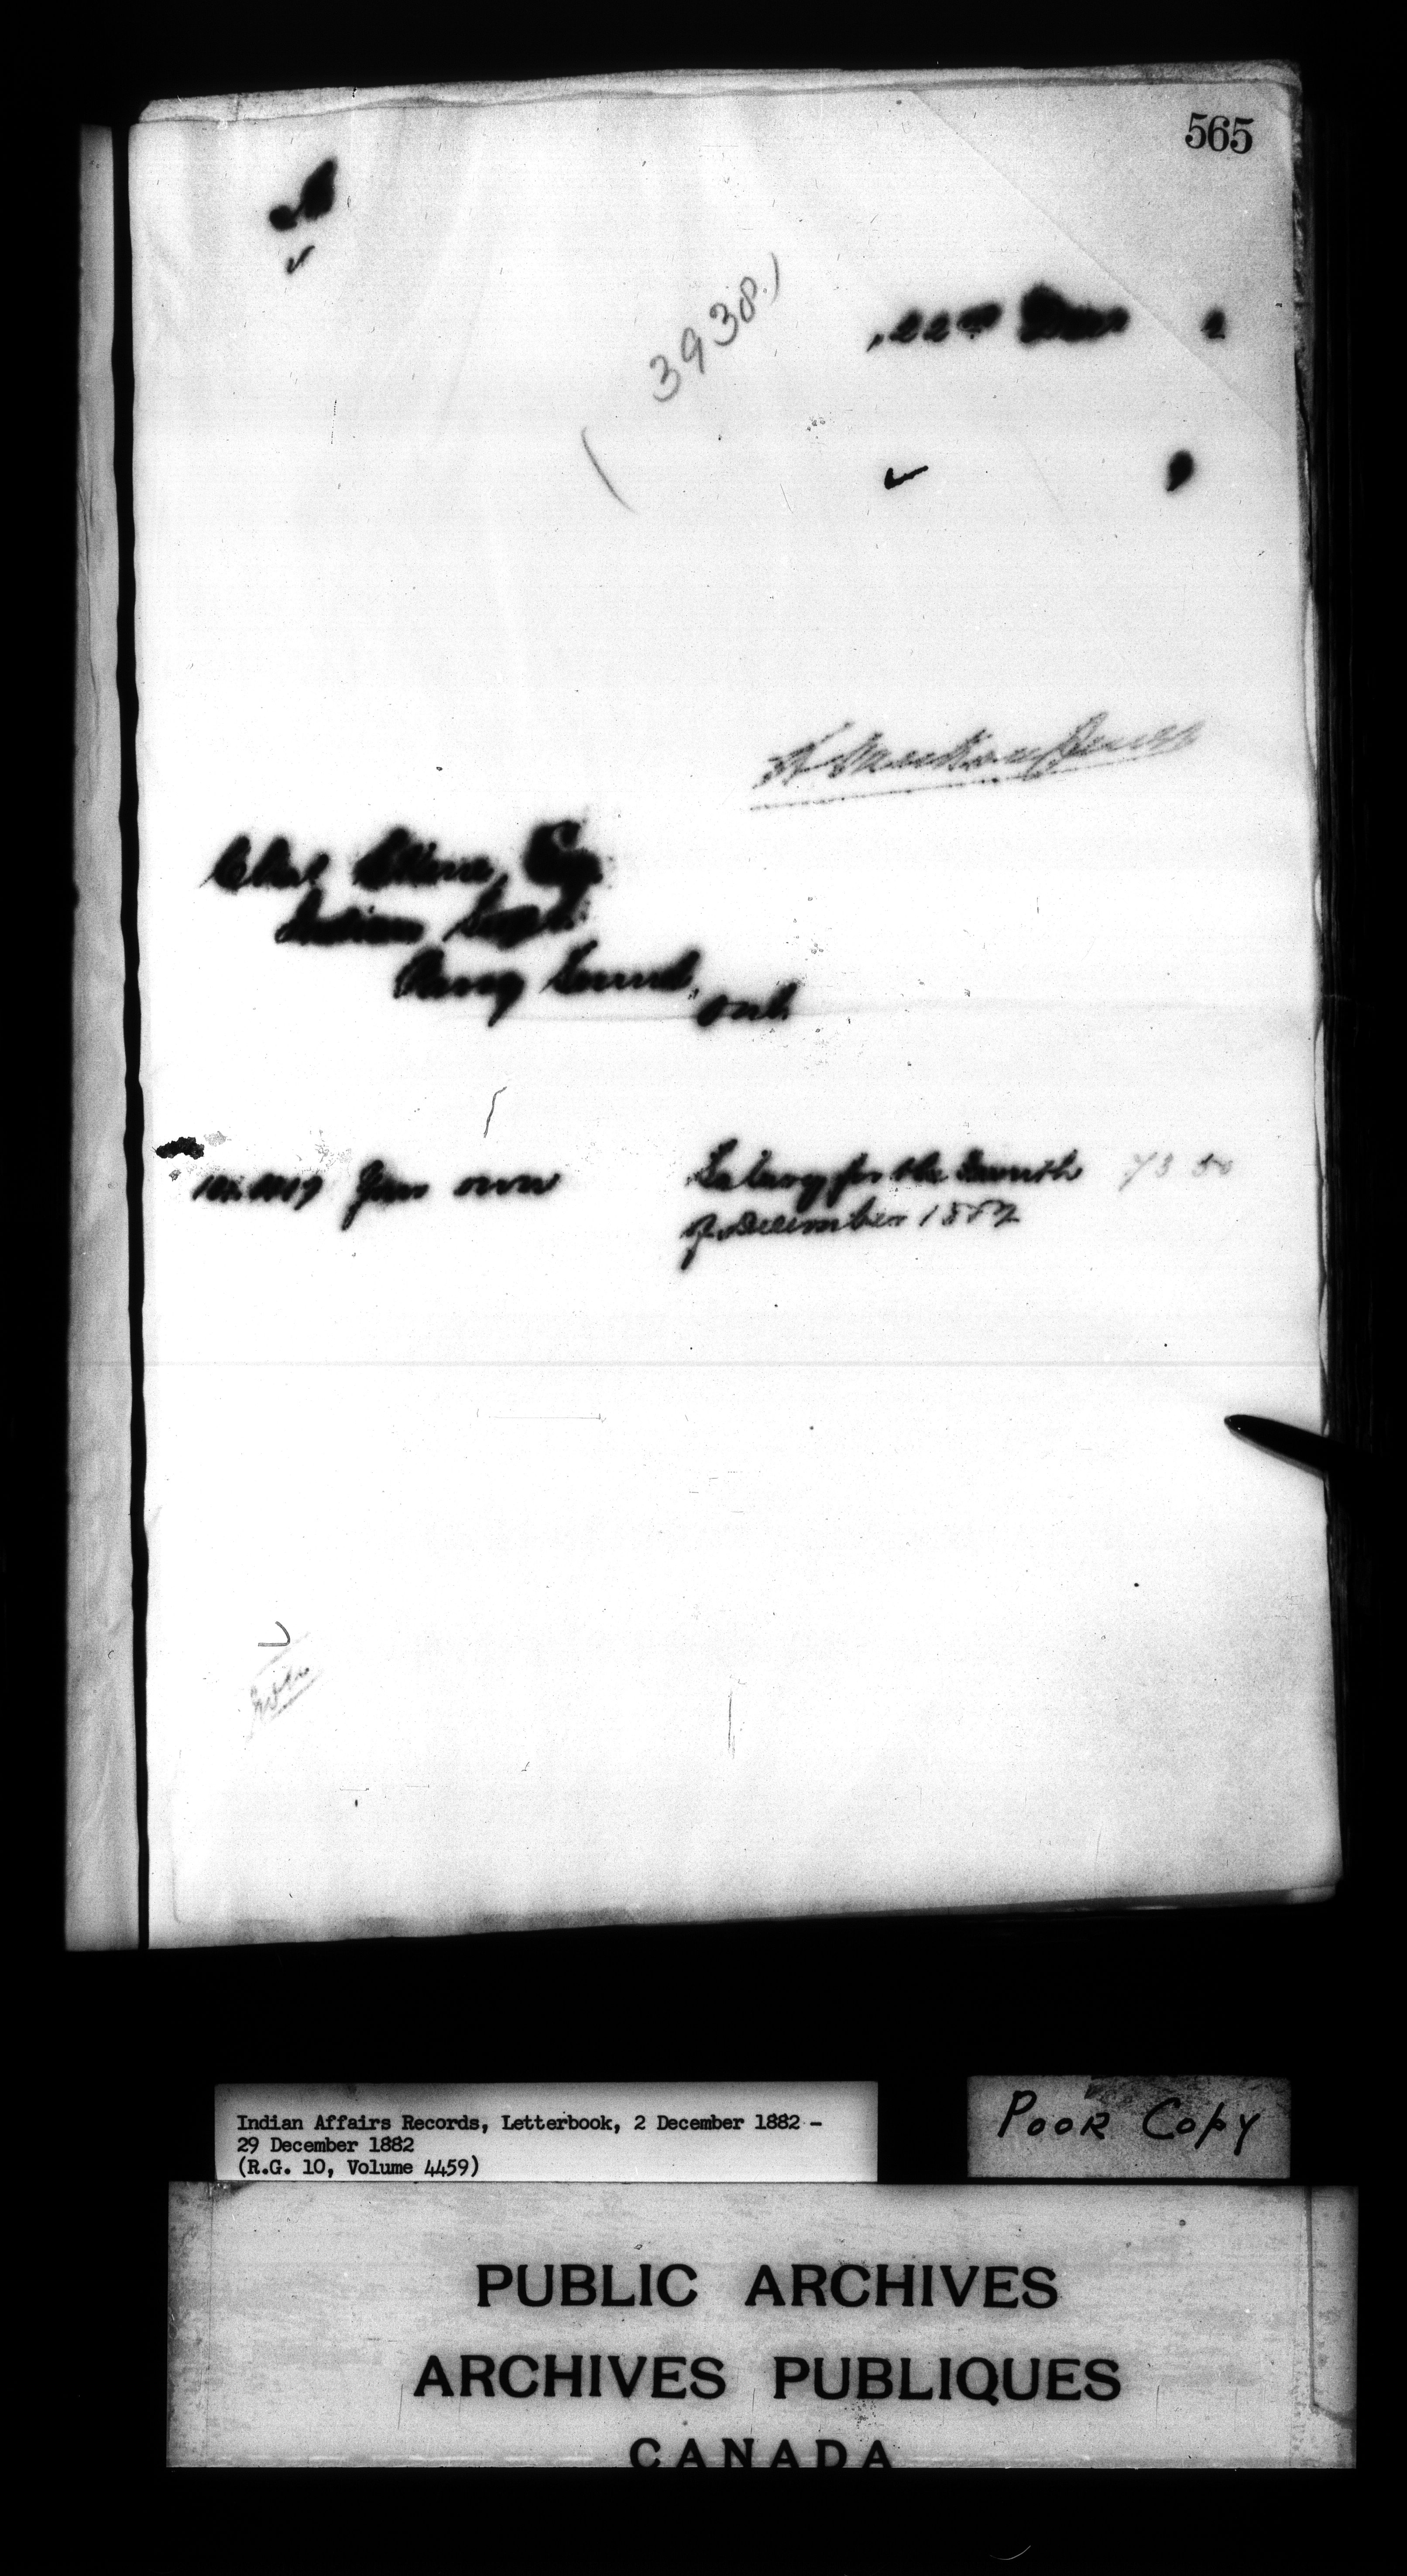 565
22nd Decr 2
(3938)
Chas Skene, Esq.
Indian Supt.
Parry Sound,
Ont.
Your own Salary for the month
of December 1882
Indian Affairs Records, Letterbook, 2 December 1882 -
29 December 1882
(R.G. 10, Volume 4459)
POOR COPY
PUBLIC ARCHIVES
ARCHIVES PUBLIQUES
CANADA